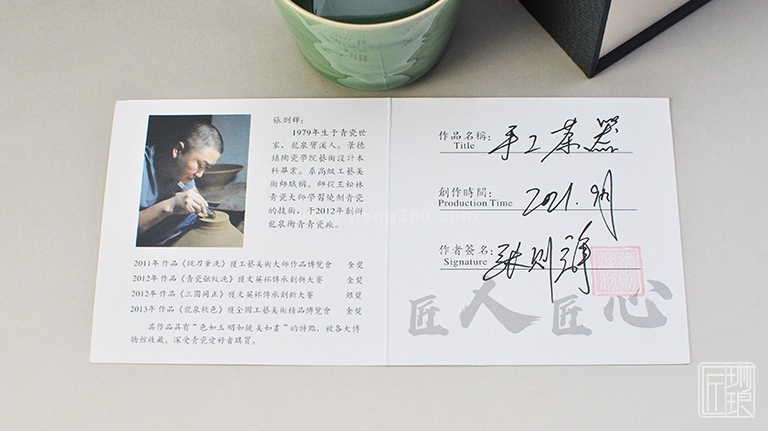 張則輝：
1979年生于青瓷世
家，龍泉寶溪人。景德
鎮陶瓷學院藝術設計本
科畢業。系高級工藝美
術師職稱。師從王松林
青瓷大師學習燒制青瓷
的技術，于2012年創辦
龍泉術青青瓷廠。
2011年作品《跳刀筆洗》獲工藝美術大師作品博覽會 金獎
2012年作品《青瓷弦紋洗》獲文英杯傳承創新大賽 金獎
2012年作品《三圓同止》獲文英杯傳承創新大賽 銀獎
2013年作品《龍泉秋色》獲全國工藝美術精品博覽會 金獎
其作品具有“色如玉明如鏡美如畫”的特點，被各大博
物館收藏。深受青瓷愛好者購買。
作品名稱：手工茶器
Title
創作時間：2021.9月
Production Time
作者簽名：张则辉
Signature
匠人匠心